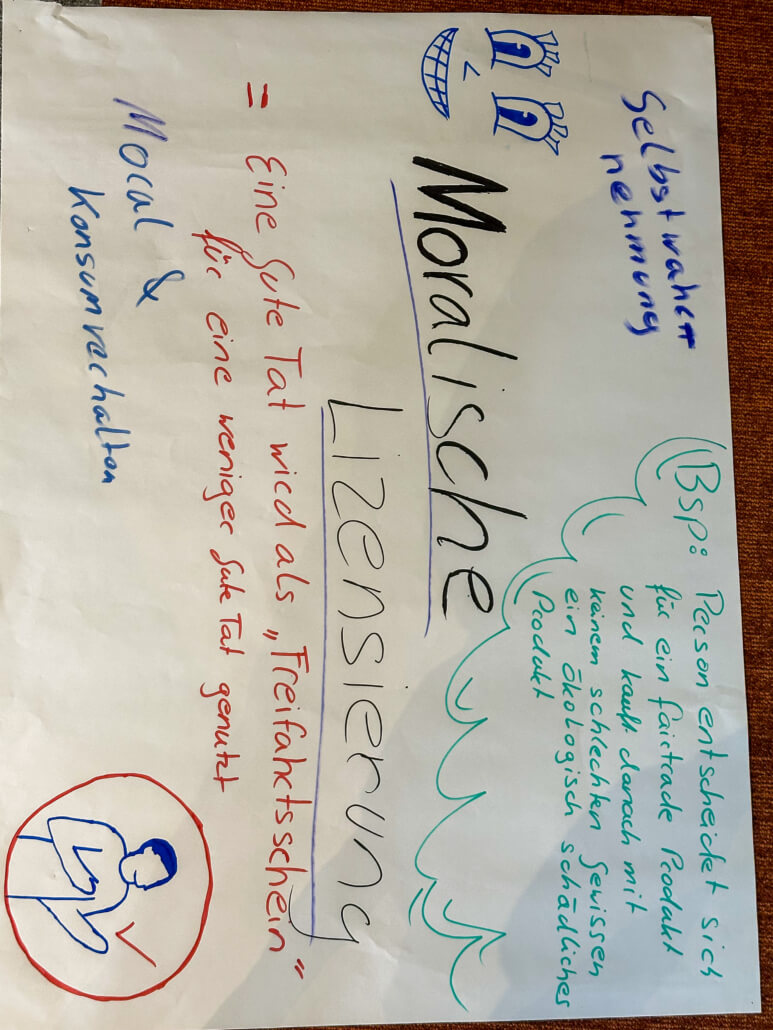 Selbstwahr-
nehmung
Bsp: Person entscheidet sich
für ein fairtrade Produkt
und kauft danach mit
keinem schlechten Gewissen
ein ökologisch schädliches
Produkt
Moralische
Lizensierung
= Eine gute Tat wird als „Freifahrtsschein“
für eine weniger gute Tat genutzt
Moral &
Konsumverhalten